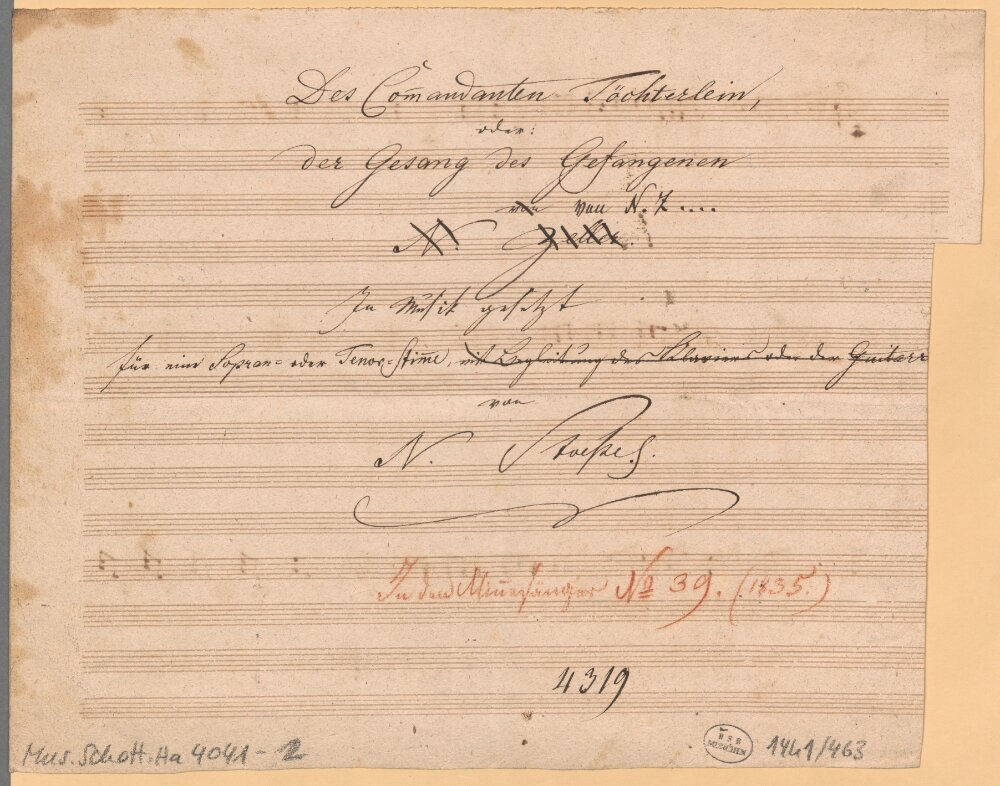 Des Com̄andanten Töchterlein,
oder:
der Gesang des Gefangenen
von von N. Z....
N.
In Musik gesetzt
für eine Sopran= oder Tenor=Stim̄e, mit Begleitung des Klaviers oder der Guitarr
von
N.
In den Min̄esänger No 39. (1835.)
4319
Mus. Schott. Ha 4041-2
BSB
MÜNCHEN
1441/463